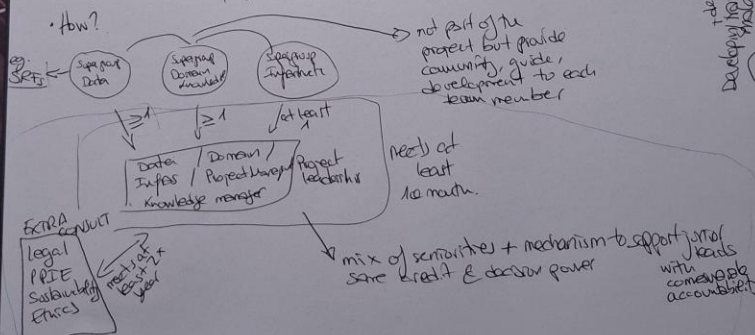 · How?
eg.
SRFs
Supergroup
Data
Supergroup
Domain
Knowledge
Supergroup
Infrastructure
not part of the
project but provide
community, guide,
development to each
team member
≥1
≥1
at least
1
Data / Domain /
Infras / Project Management
Knowledge manager
Project
leadership
needs at
least
1x month.
EXTRA
CONSULT
Legal
PPIE
Sustainability
Ethics
needs at
least 2x
year
mix of seniorities + mechanism to support junior
leads
same credit & decision power
with
accountability
Developing